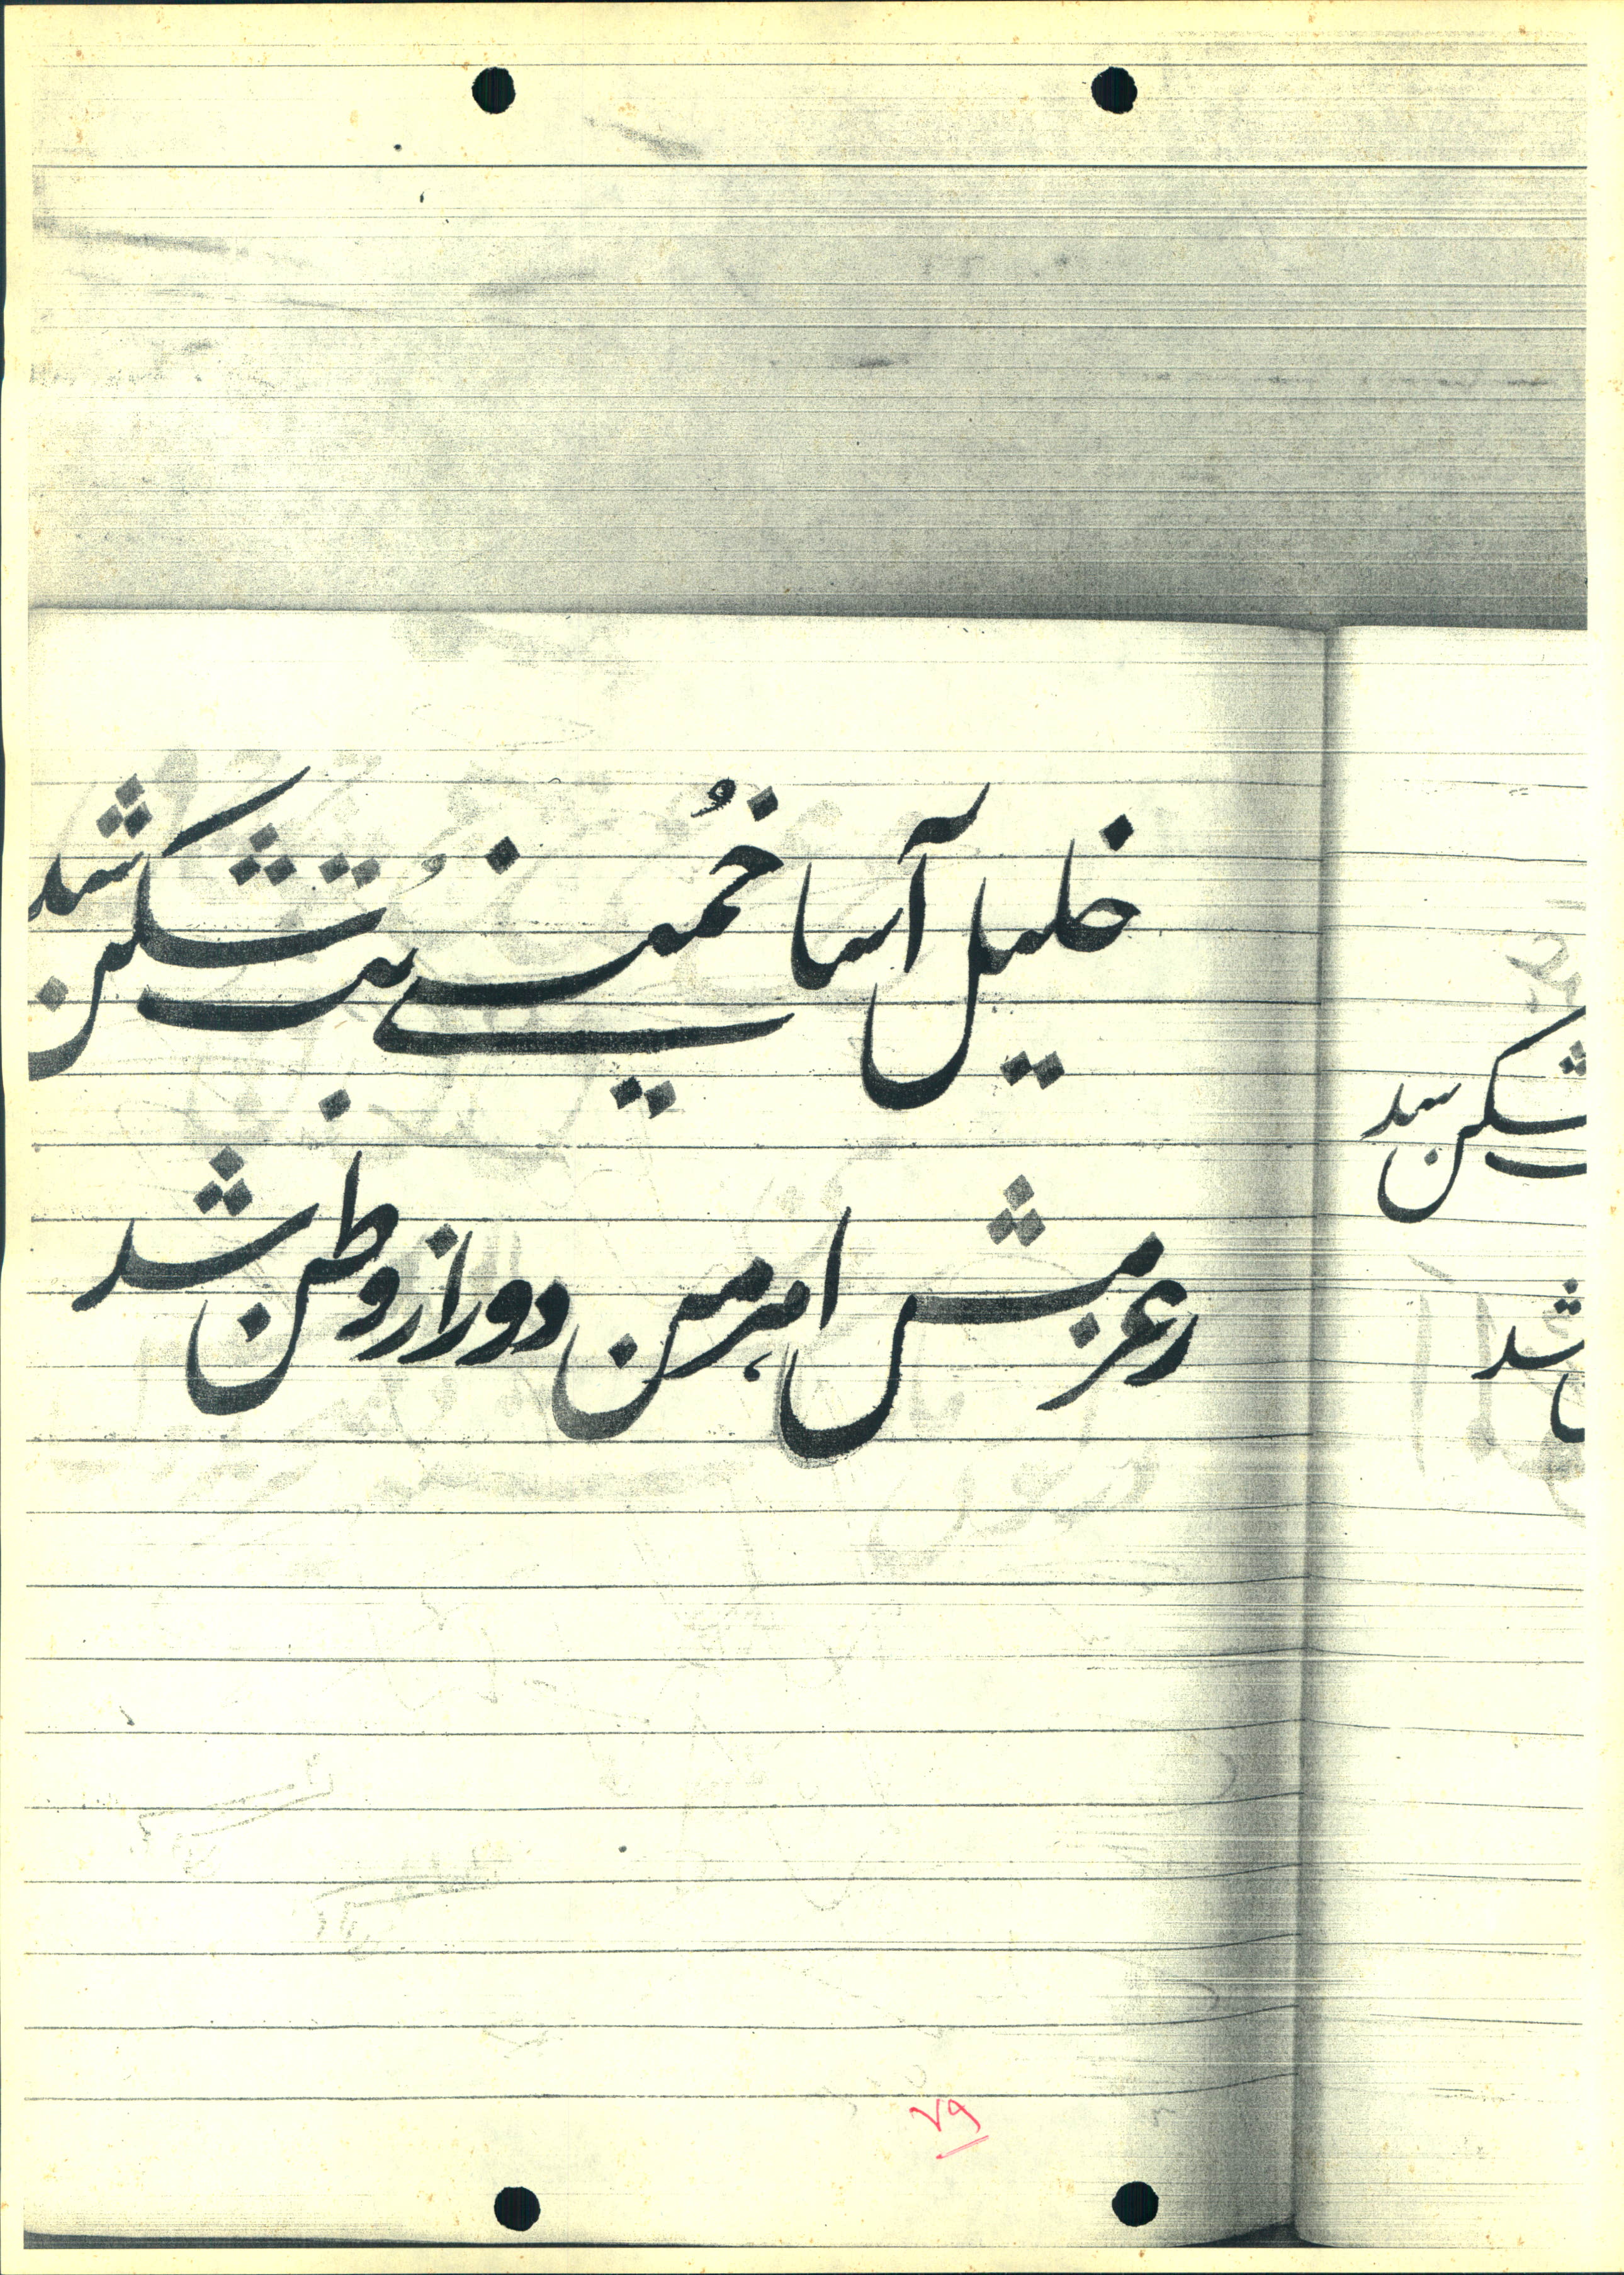 خلیل آسا خُمینی بُت شکن شد
زعزمش اهرمن دور از وطن شد
شکن شد
شد
۷۹